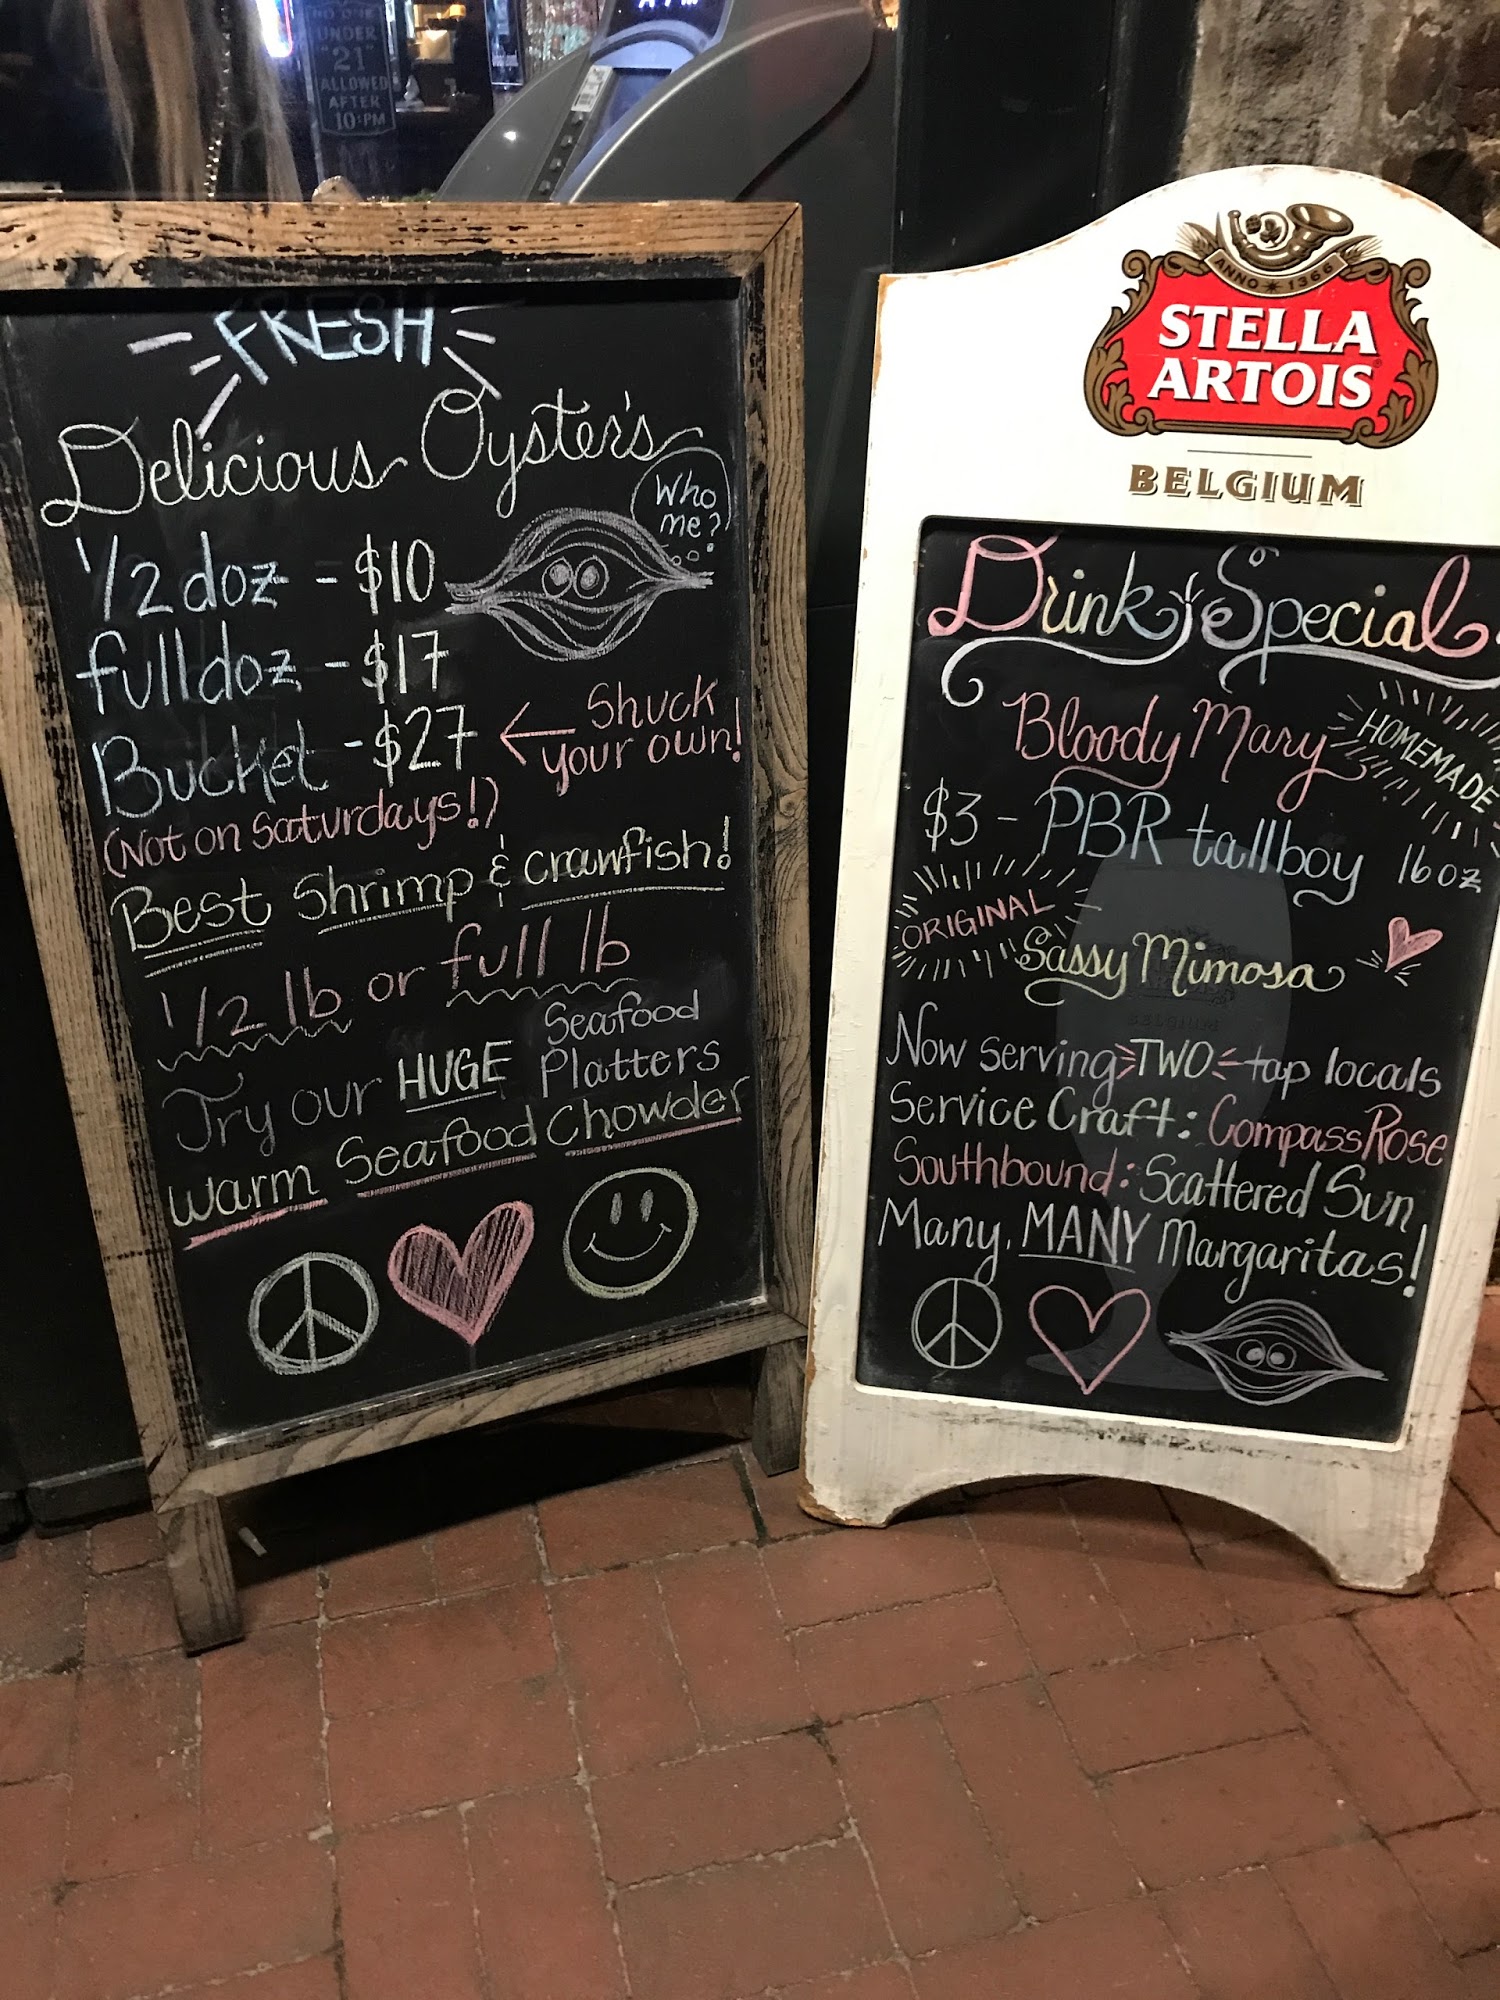 NO ONE
UNDER
"21"
ALLOWED
AFTER
10:PM
FRESH
Delicious Oyster's
Who
me?
1/2 doz - $10
full doz - $17
Bucket - $27 ← Shuck
your own!
(Not on Saturdays!)
Best Shrimp & crawfish!
1/2 lb or full lb
Try our HUGE Seafood
Platters
Warm Seafood Chowder
ANNO * 1366
STELLA
ARTOIS
BELGIUM
Drink Special
Bloody Mary HOMEMADE
$3 - PBR tallboy 16oz
ORIGINAL
Sassy Mimosa
Now serving TWO tap locals
Service Craft: Compass Rose
Southbound: Scattered Sun
Many, MANY Margaritas!